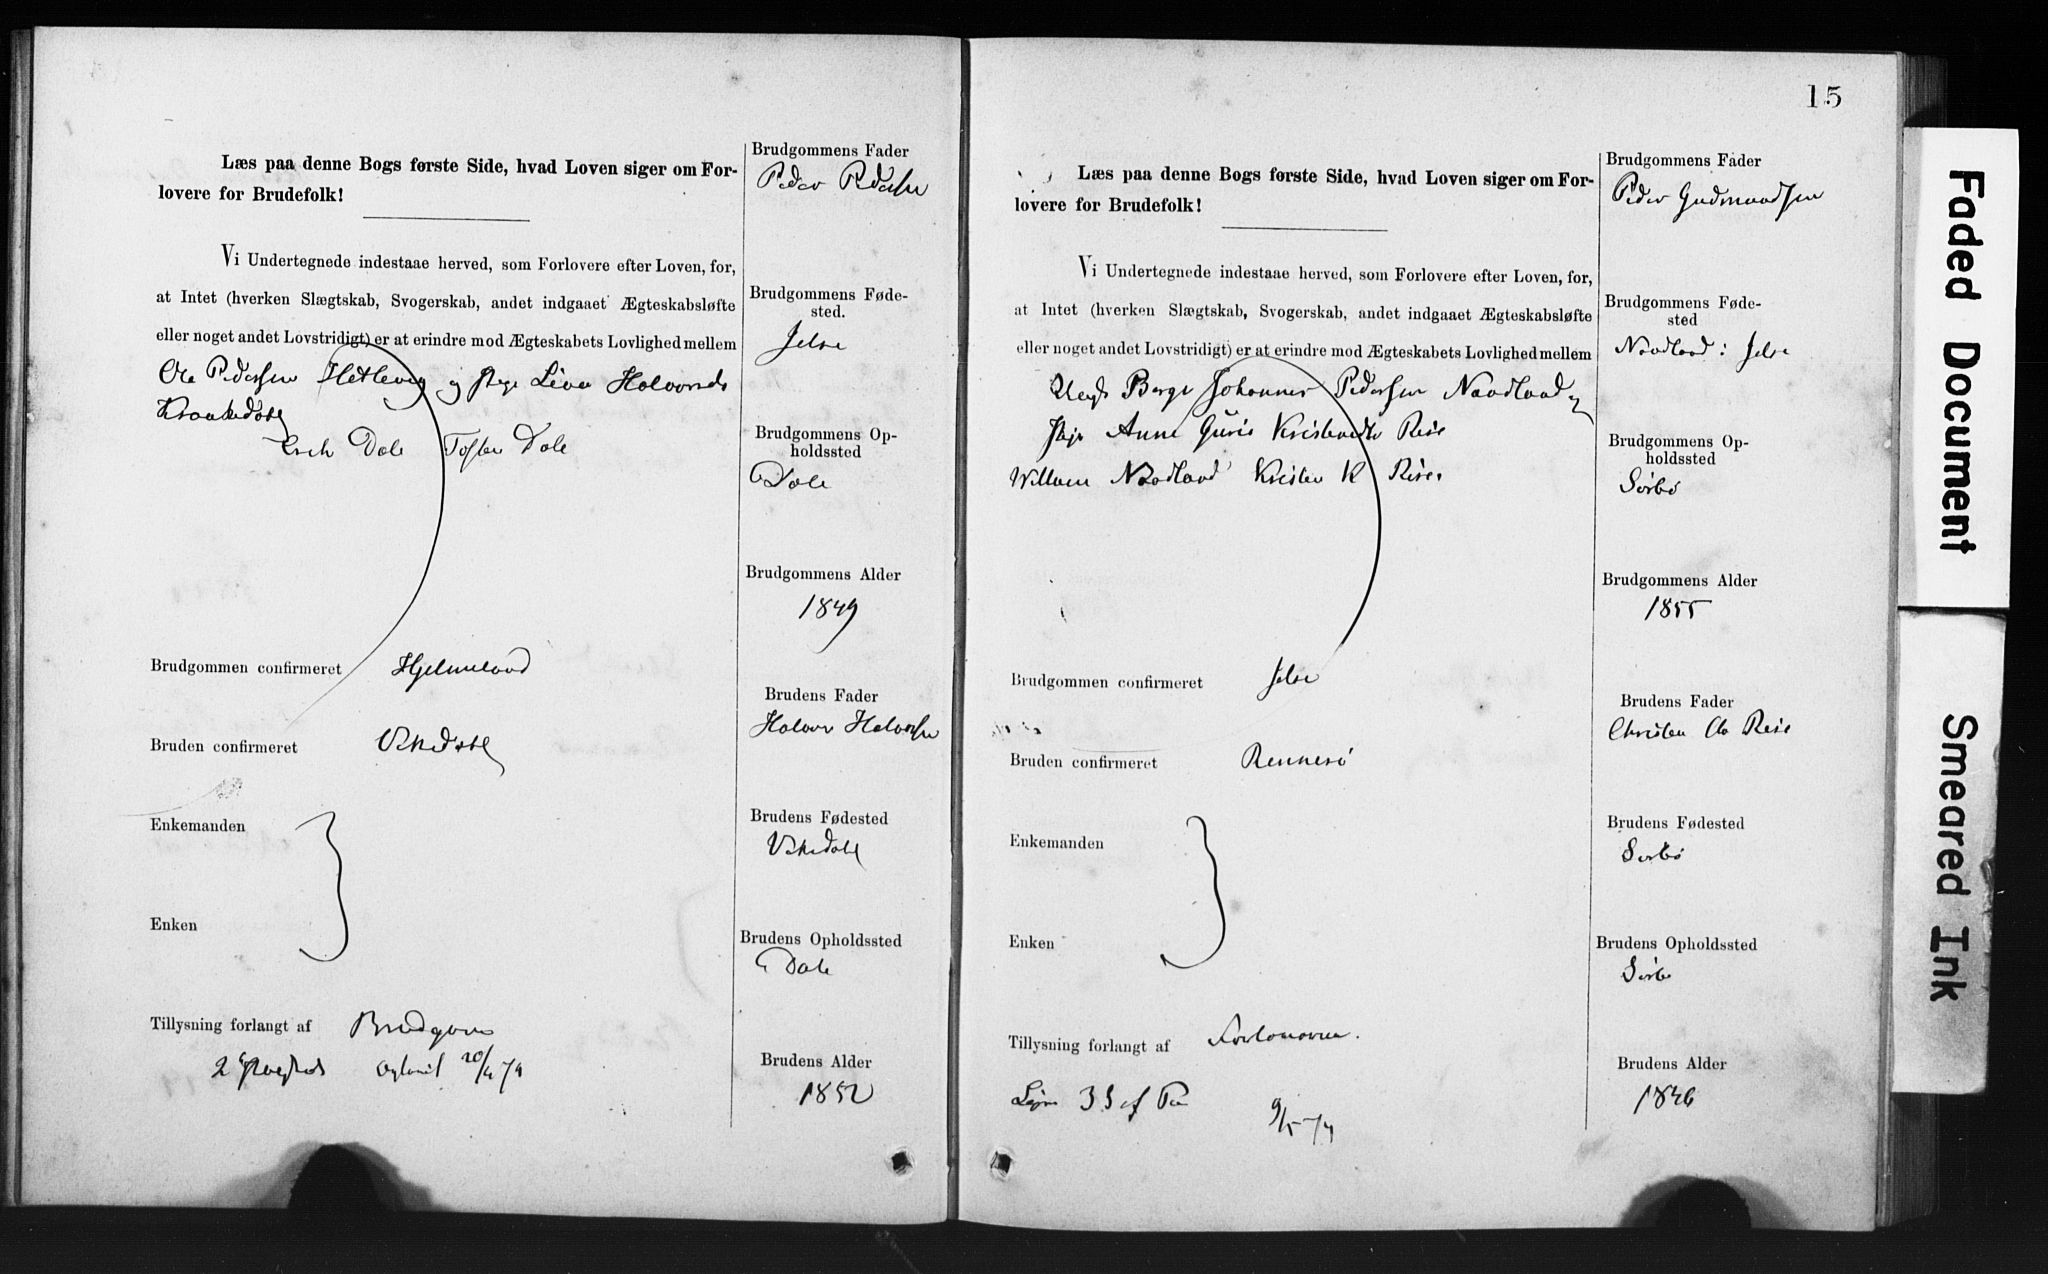 Læs paa denne Bogs første Side, hvad Loven siger om For-
lovere for Brudefolk!
Vi Undertegnede indestaae herved, som Forlovere efter Loven, for,
at Intet (hverken Slægtskab, Svogerskab, andet indgaaet Ægteskabsløfte
eller noget andet Lovstridigt) er at erindre mod Ægteskabets Lovlighed mellem
Ole Pedersen Hetlevig og Pige Liva Halvorsd
Dale Dale
Brudgommen confirmeret Hjelmeland
Bruden confirmeret Vikedal
Enkemanden
Enken
Tillysning forlangt af Brudgom
20/4 74
Brudgommens Fader
Peder Pedersen
Brudgommens Føde-
sted.
Jelse
Brudgommens Op-
holdssted
Dale
Brudgommens Alder
1849
Brudens Fader
Halvor Halvorsen
Brudens Fødested
Vikedal
Brudens Opholdssted
Dale
Brudens Alder
1852
15
Læs paa denne Bogs første Side, hvad Loven siger om For-
lovere for Brudefolk!
Vi Undertegnede indestaae herved, som Forlovere efter Loven, for,
at Intet (hverken Slægtskab, Svogerskab, andet indgaaet Ægteskabsløfte
eller noget andet Lovstridigt) er at erindre mod Ægteskabets Lovlighed mellem
Johannes Pedersen Nordland og
Pige Anne Guris
Willum Nordland Kristen K
Brudgommen confirmeret Jelse
Bruden confirmeret Rennesø
Enkemanden
Enken
Tillysning forlangt af Forloveren.
9/5 74
Brudgommens Fader
Peder Gudmundsen
Brudgommens Føde-
sted
Nordland i Jelse
Brudgommens Op-
holdssted
Sørbø
Brudgommens Alder
1855
Brudens Fader
Christen
Brudens Fødested
Sørbø
Brudens Opholdssted
Sørbø
Brudens Alder
1846
Faded Document
Smeared Ink